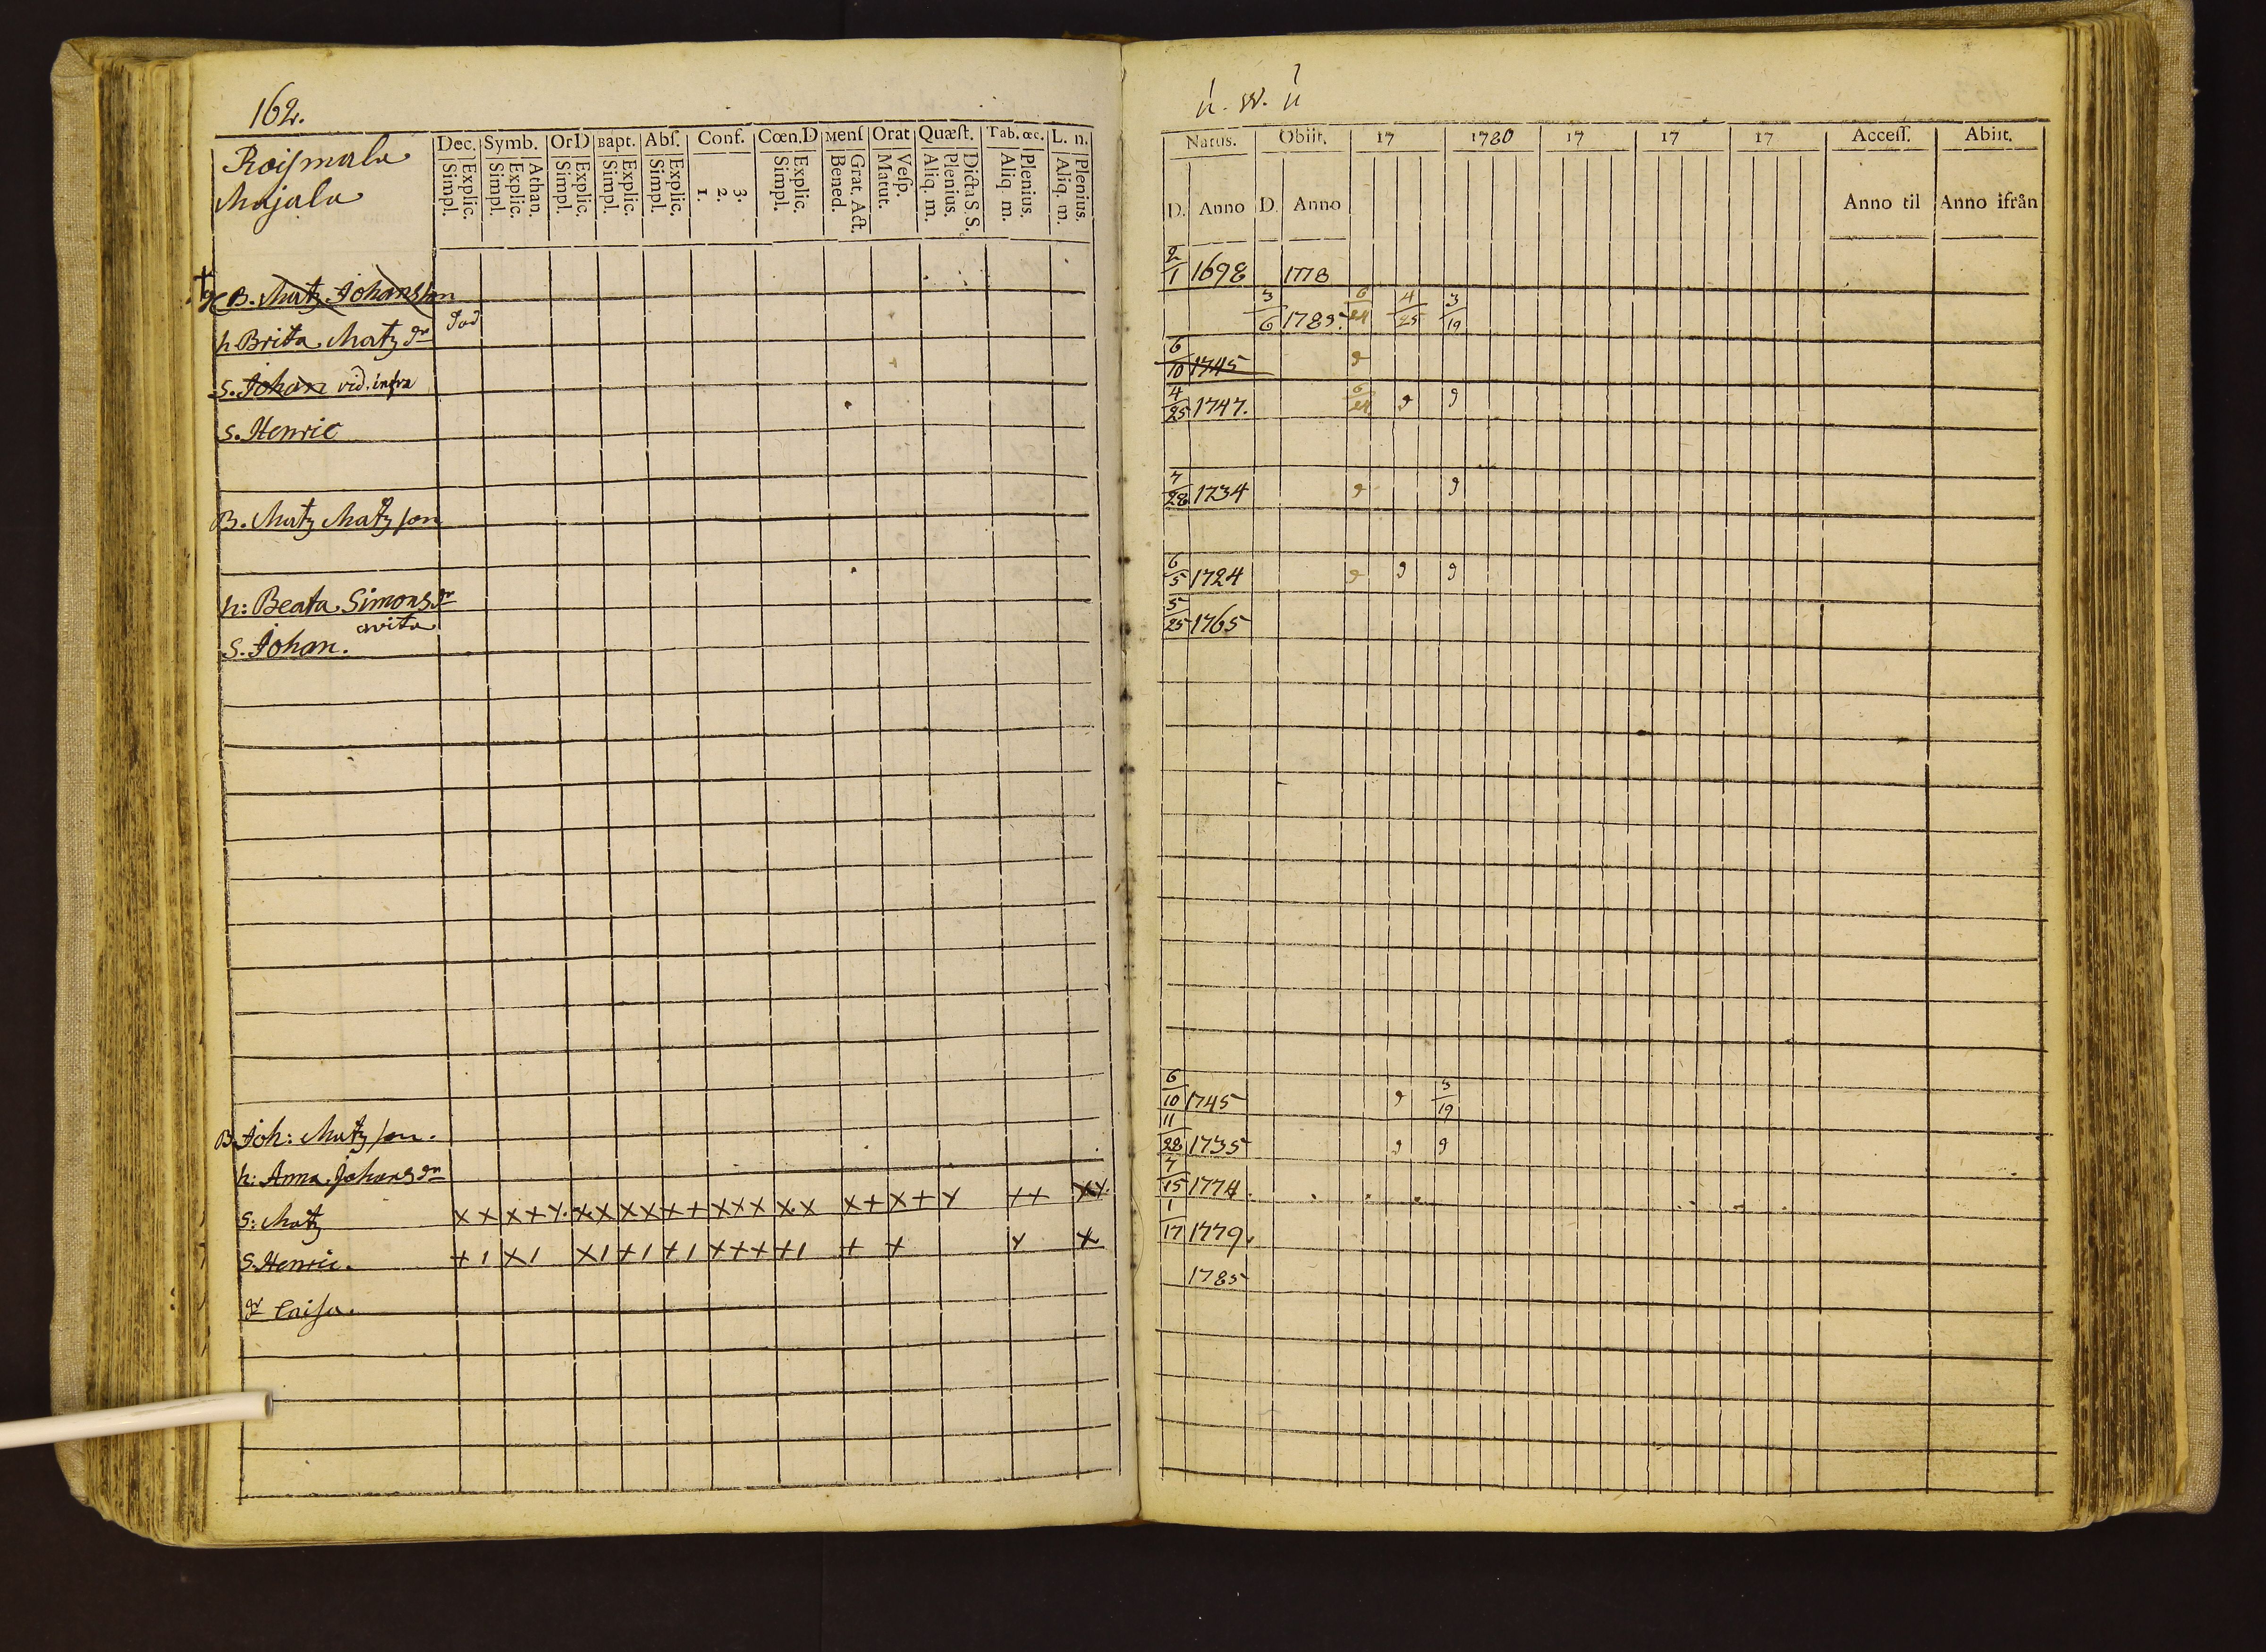 162.
Roismala
Majala
Dec. Symb. OrD Bapt. Abſ. Conf. Cœn.D Menſ Orat Quæſt. Tab. œc. L. n.
Simpl. Explic. Simpl. Explic. Athan. Simpl. Explic. Simpl. Explic. Simpl. Explic. 1. 2. 3. Simpl. Explic. Bened. Grat. Act. Matut. Veſp. Aliq. m. Plenius. Dicta S. S. Aliq m. Plenius. Aliq. m. Plenius.
† B. Matz Johansson
h Brita Matz dr död
S. Johan vid. infra
S. Henric
B. Matz Matzson
h: Beata Simons dr
S. Johan. avita
B. Joh: Matzson.
h: Anna Johans dr
S: Matz x x x + y. x x x x x + x x x x. x x + x + y + + x y.
S. Henric. + 1 x 1 x 1 + 1 + 1 + + + + 1 + + y x
dr Caisa.
n. W. n
Natus. Obiit. 17 1780 17 17 17 Acceſſ. Abiit.
D. Anno D. Anno Anno til Anno ifrån
2/1 1698 1778
3/6 1789. 6/24 4/25 3/19
6/10 1745 9
4/25 1747. 6/24 9 9
7/28 1734 9 9
6/5 1724 9 9 9
5/25 1765
6/10 1745 9 3/19
11/22 1735 9 9
4/15 1774.
1/17 1779.
1785